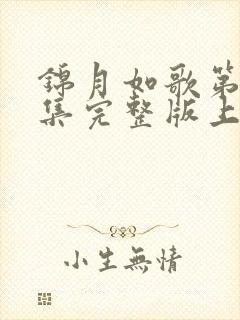 錦月如歌第
集完整版上
小生無情